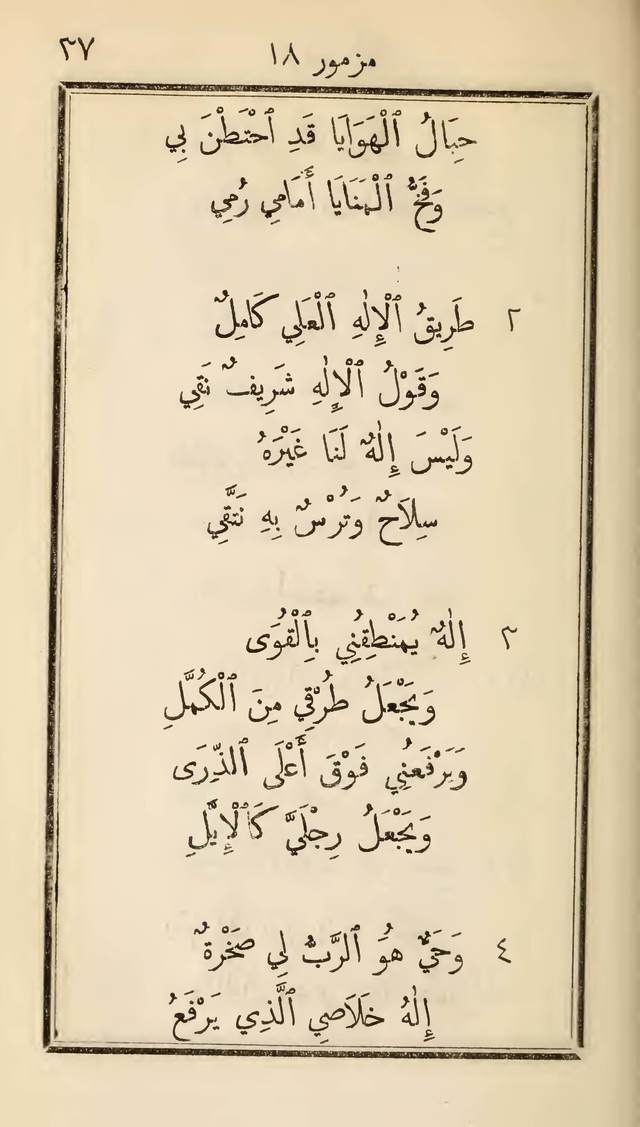 مزمور ١٨ ٣٧
حِبَالُ ٱلْهَوَايَا قَدِ ٱحْتَطْنَ بِي
وَفَخُّ ٱلْمَنَايَا أَمَامِي رُمِي
٢ طَرِيقُ ٱلْإِلٰهِ ٱلْعَلِي كَامِلٌ
وَقَوْلُ ٱلْإِلٰهِ شَرِيفٌ نَقِي
وَلَيْسَ إِلٰهٌ لَنَا غَيْرَهُ
سِلَاحٌ وَتُرْسٌ بِهِ نَتَّقِي
٣ إِلٰهٌ يُمَنْطِقُنِي بِٱلْقُوَى
وَيَجْعَلُ طُرْقِي مِنَ ٱلْكُمَّلِ
وَيَرْفَعُنِي فَوْقَ أَعْلَى ٱلذِّرَى
وَيَجْعَلُ رِجْلَيَّ كَٱلْإِيَّلِ
٤ وَحَيٌّ هُوَ ٱلرَّبُّ لِي صَخْرَةٌ
إِلٰهُ خَلَاصِي ٱلَّذِي يَرْفَعُ